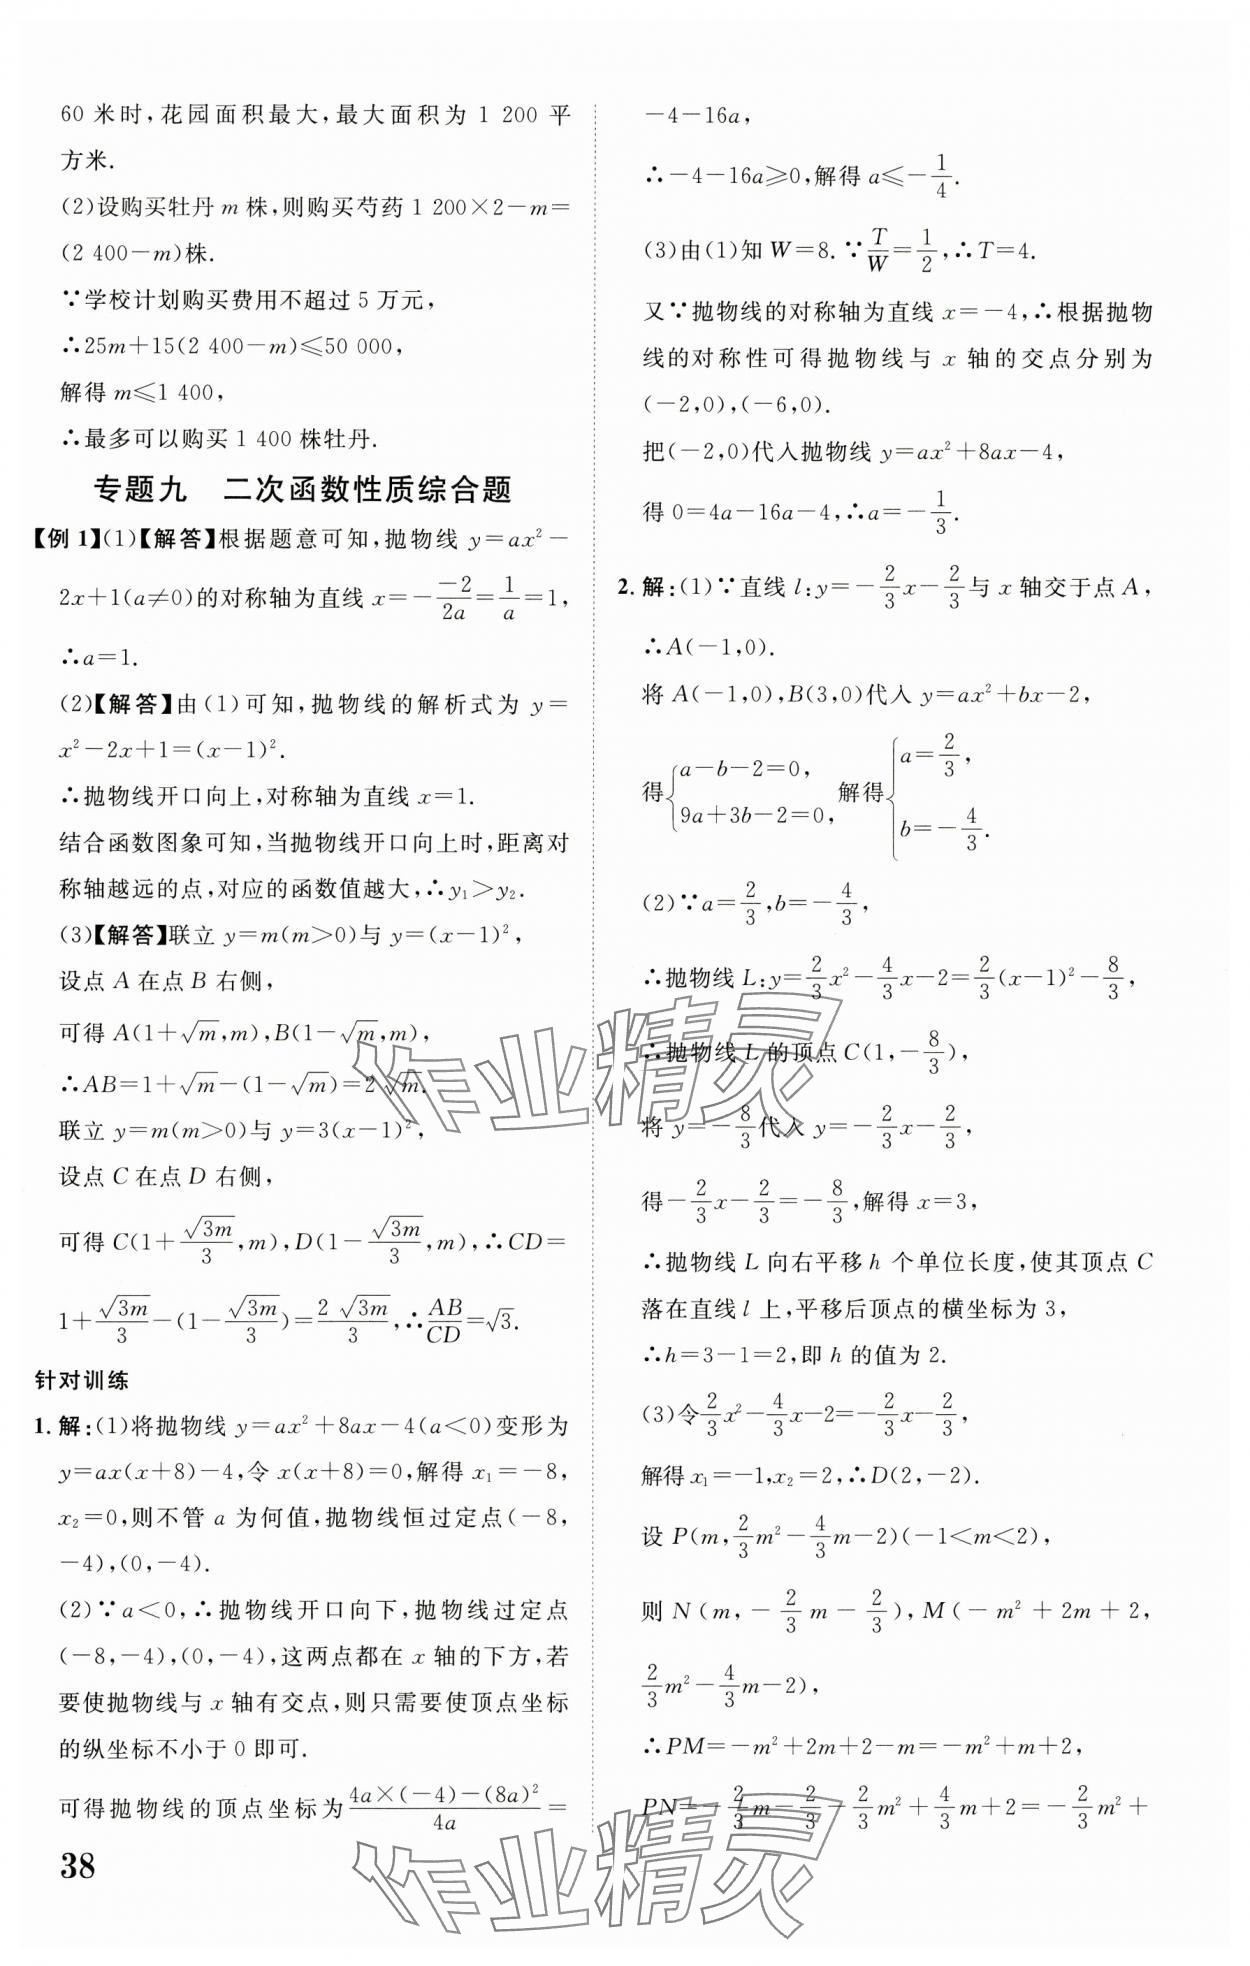 60 米时,花园面积最大,最大面积为 1 200 平
方米.
(2)设购买牡丹 m 株,则购买芍药 1 200×2−m=
(2 400−m)株.
∵学校计划购买费用不超过 5 万元,
∴25m+15(2 400−m)≤50 000,
解得 m≤1 400,
∴最多可以购买 1 400 株牡丹.
专题九 二次函数性质综合题
【例 1】(1)【解答】根据题意可知,抛物线 y=ax²−
2x+1(a≠0)的对称轴为直线 x=−\frac{-2}{2a}=\frac{1}{a}=1,
∴a=1.
(2)【解答】由(1)可知,抛物线的解析式为 y=
x²−2x+1=(x−1)².
∴抛物线开口向上,对称轴为直线 x=1.
结合函数图象可知,当抛物线开口向上时,距离对
称轴越远的点,对应的函数值越大,∴y₁>y₂.
(3)【解答】联立 y=m(m>0)与 y=(x−1)²,
设点 A 在点 B 右侧,
可得 A(1+√m,m),B(1−√m,m),
∴AB=1+√m−(1−√m)=2√m.
联立 y=m(m>0)与 y=3(x−1)²,
设点 C 在点 D 右侧,
可得 C(1+\frac{√3m}{3},m),D(1−\frac{√3m}{3},m),∴CD=
1+\frac{√3m}{3}−(1−\frac{√3m}{3})=\frac{2√3m}{3},∴\frac{AB}{CD}=√3.
针对训练
1. 解:(1)将抛物线 y=ax²+8ax−4(a<0)变形为
y=ax(x+8)−4,令 x(x+8)=0,解得 x₁=−8,
x₂=0,则不管 a 为何值,抛物线恒过定点(−8,
−4),(0,−4).
(2)∵a<0,∴抛物线开口向下,抛物线过定点
(−8,−4),(0,−4),这两点都在 x 轴的下方,若
要使抛物线与 x 轴有交点,则只需要使顶点坐标
的纵坐标不小于 0 即可.
可得抛物线的顶点坐标为\frac{4a×(−4)−(8a)²}{4a}=
38
−4−16a,
∴−4−16a≥0,解得 a≤−\frac{1}{4}.
(3)由(1)知 W=8.∵\frac{T}{W}=\frac{1}{2},∴T=4.
又∵抛物线的对称轴为直线 x=−4,∴根据抛物
线的对称性可得抛物线与 x 轴的交点分别为
(−2,0),(−6,0).
把(−2,0)代入抛物线 y=ax²+8ax−4,
得 0=4a−16a−4,∴a=−\frac{1}{3}.
2. 解:(1)∵直线 l:y=−\frac{2}{3}x−\frac{2}{3}与 x 轴交于点 A,
∴A(−1,0).
将 A(−1,0),B(3,0)代入 y=ax²+bx−2,
得{a−b−2=0, 9a+3b−2=0, 解得{a=\frac{2}{3}, b=−\frac{4}{3}.
(2)∵a=\frac{2}{3},b=−\frac{4}{3},
∴抛物线 L:y=\frac{2}{3}x²−\frac{4}{3}x−2=\frac{2}{3}(x−1)²−\frac{8}{3},
∴抛物线 L 的顶点 C(1,−\frac{8}{3}),
将 y=−\frac{8}{3}代入 y=−\frac{2}{3}x−\frac{2}{3},
得−\frac{2}{3}x−\frac{2}{3}=−\frac{8}{3},解得 x=3,
∴抛物线 L 向右平移 h 个单位长度,使其顶点 C
落在直线 l 上,平移后顶点的横坐标为 3,
∴h=3−1=2,即 h 的值为 2.
(3)令\frac{2}{3}x²−\frac{4}{3}x−2=−\frac{2}{3}x−\frac{2}{3},
解得 x₁=−1,x₂=2,∴D(2,−2).
设 P(m,\frac{2}{3}m²−\frac{4}{3}m−2)(−1<m<2),
则 N(m,−\frac{2}{3}m−\frac{2}{3}),M(−m²+2m+2,
\frac{2}{3}m²−\frac{4}{3}m−2),
∴PM=−m²+2m+2−m=−m²+m+2,
PN=−\frac{2}{3}m−\frac{2}{3}−\frac{2}{3}m²+\frac{4}{3}m+2=−\frac{2}{3}m²+
作业精灵
作业精灵